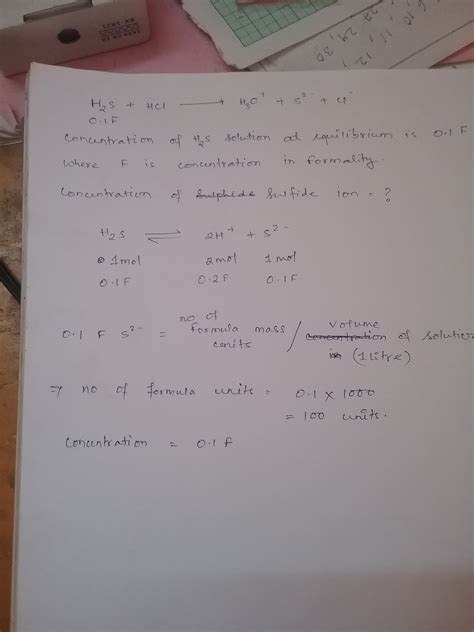 H₂S + HCl ⟶ H₃O⁺ + S²⁻ + Cl⁻
0.1F
Concentration of H₂S solution at equilibrium is 0.1 F
where F is concentration in formality.
Concentration of sulfide ion = ?
H₂S ⇌ 2H⁺ + S²⁻
1mol 2mol 1mol
0.1F 0.2F 0.1F
0.1 F S²⁻ = no of formula mass units / volume of solution (1 Litre)
⇒ no of formula units = 0.1 × 1000
= 100 units.
Concentration = 0.1 F